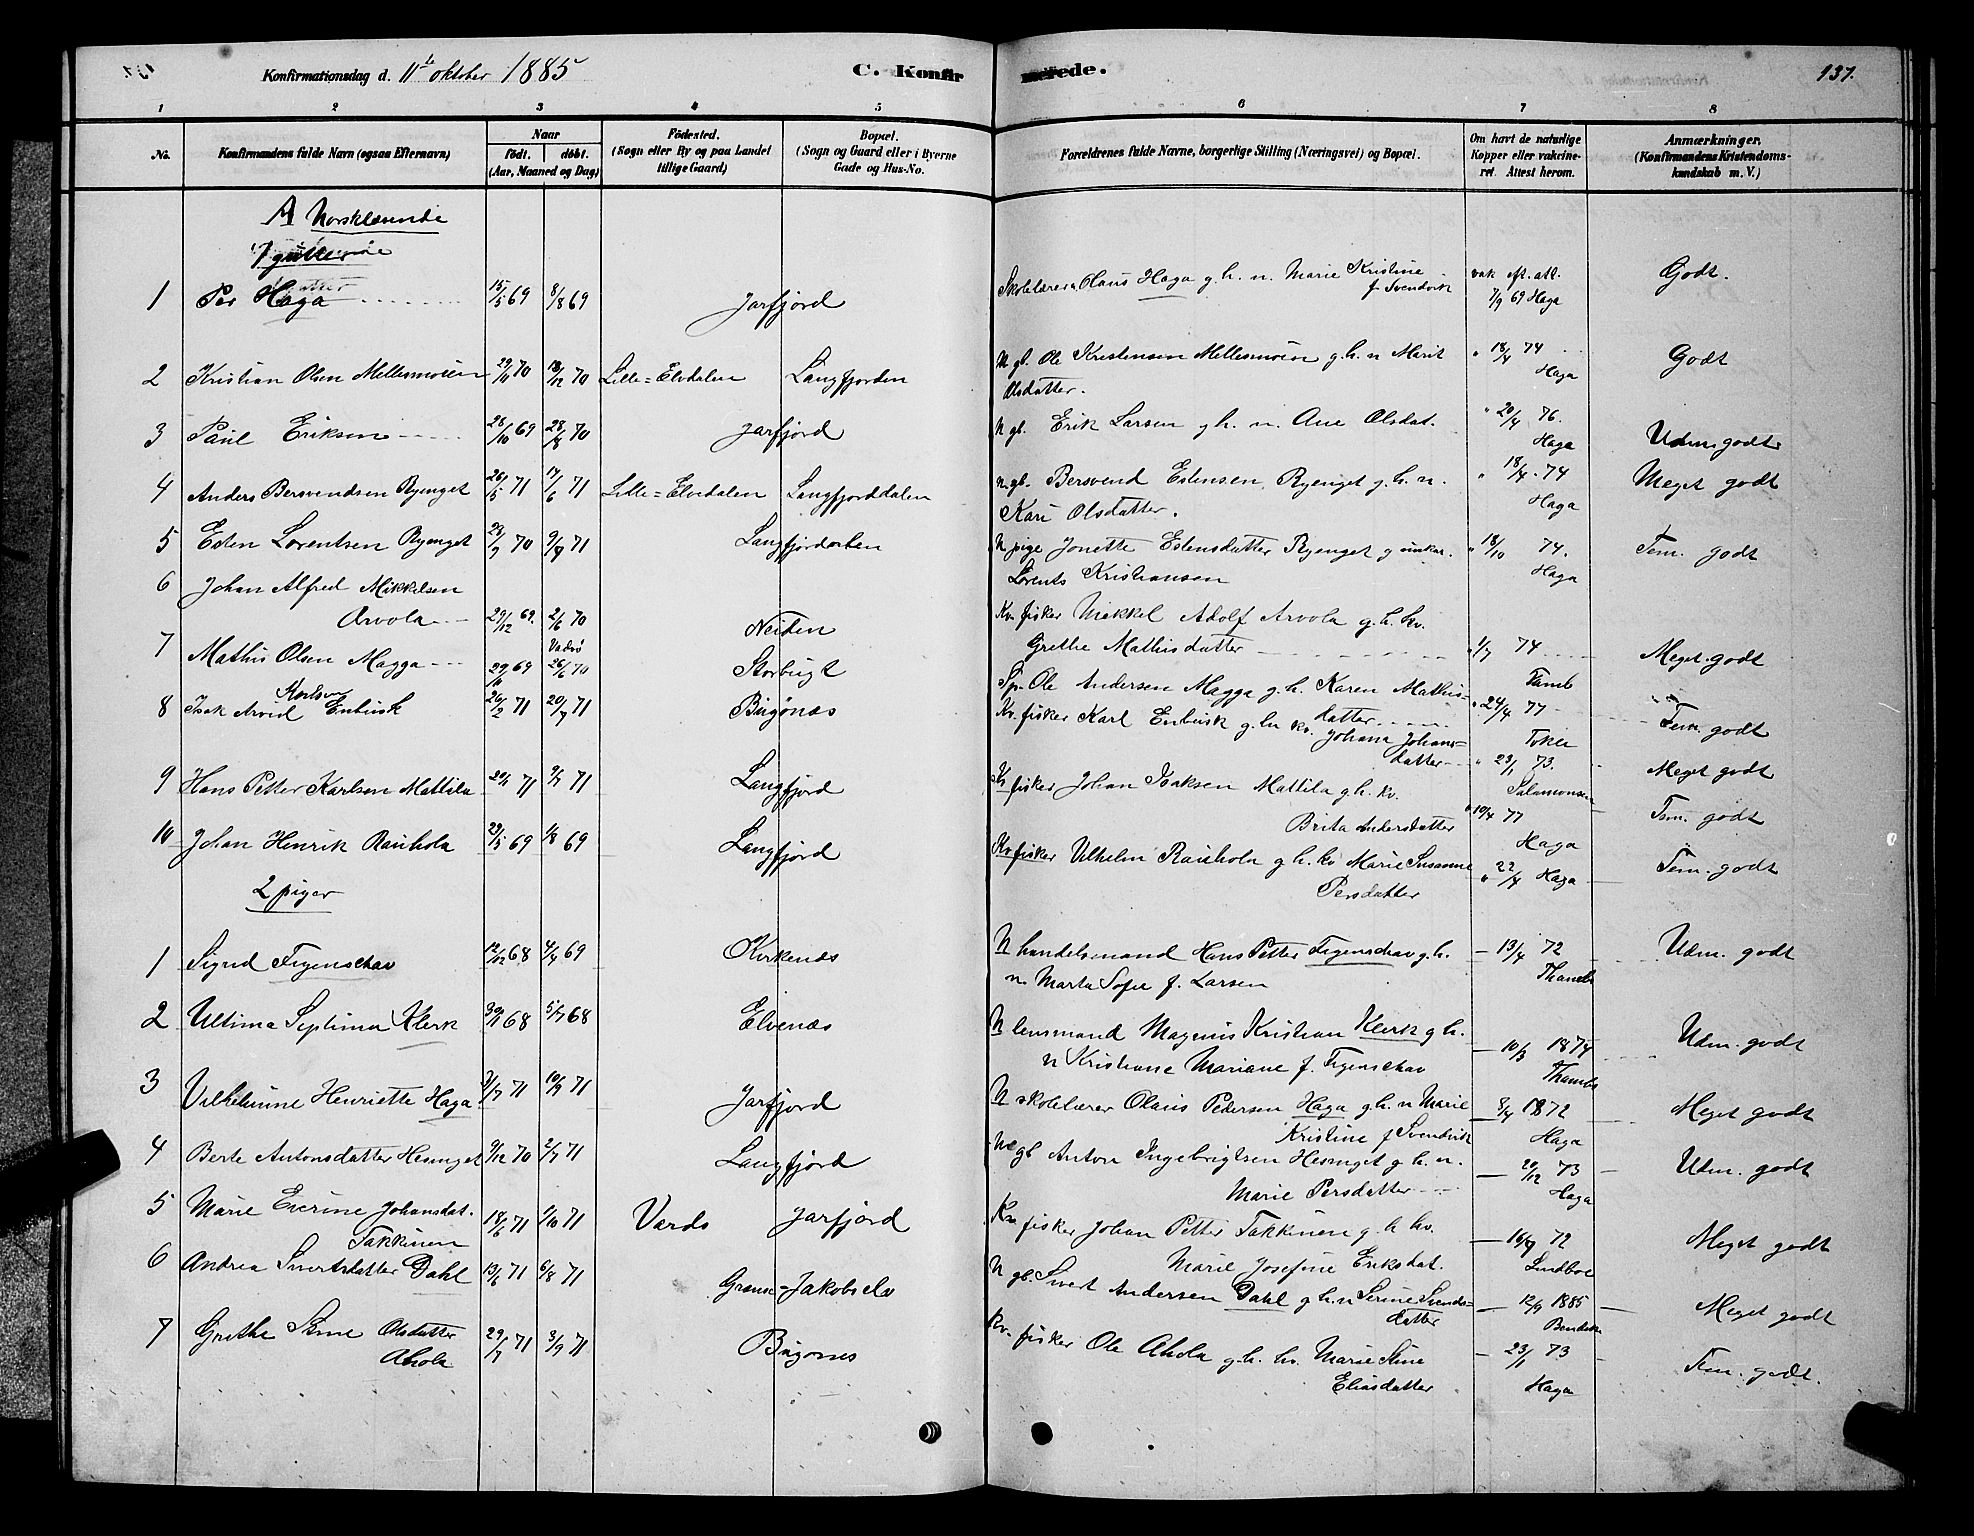 Konfirmationsdag d. 11te oktober 1885
C. Konfirmerede.
137.
1 2 3 4 5 6 7 8
No.
Konfirmandens fulde Navn (ogsaa Efternavn)
Naar
født. døbt.
(Aar, Maaned og Dag)
Fødested.
(Sogn eller By og paa Landet
tillige Gaard)
Bopæl.
(Sogn og Gaard eller i Byerne
Gade og Hus-No.
Forældrenes fulde Navne, borgerlige Stilling (Næringsvei) og Bopæl.
Om havt de naturlige
Kopper eller vakcine-
ret. Attest herom.
Anmærkninger.
(Konfirmandens Kristendoms-
kundskab m. V.)
A Norsklæsende
1 gutter
1 Per Haga 15/5 69 8/8 69 Jarfjord Skolelærer Olaus Haga g. h. n. Marie Kristine
f. Svendvik vak. eft. att. 7/9 69 Haga Godt.
2 Kristian Olsen Mellesmoen 29/11 70 18/12 70 Lille=Elvdalen Langfjorden N gb. Ole Kristensen Mellesmoen g. h. n Marit
Olsdatter. " 18/4 74 Haga Godt
3 Paul Eriksen 28/10 69 28/8 70 Jarfjord N gb. Erik Larsen g h. n. Ane Olsdat. " 20/4 76. Haga Udm. godt
4 Anders Bersvendsen Ryenget 26/5 71 17/6 71 Lille=Elvedalen Langfjorddalen n. gb. Bersvend Estensen Ryenget g. h. n.
Kari Olsdatter. " 18/4 74 Haga Meget godt
5 Esten Lorentsen Ryenget 29/7 70 9/7 71 Langfjordorden N pige Jonette Estensdatter Ryenget g unkar.
Lorents Kristiansen " 18/10 74. Haga Tem. godt
6 Johan Alfred Mikkelsen
Arvola 29/12 69. 2/6 70 Neiden Kv. fisker Mikkel Adolf Arvola g. h. kv.
Grethe Mathisdatter " 1/7 74 Tamb Meget godt
7 Mathis Olsen Magga 29/11 69 Vadsø 26/6 70 Storbugt Sp. Ole Andersen Magga g. h. Karen Mathis-
datter " 24/4 77 Toker Tem. godt
8 Isak Arvid Karlsen Enbusk 26/2 71 20/7 71 Bugønæs Kv. fisker Karl Enbusk g. h. kv. Johana Johans=
datter " 23/1 73. Salamonsen Meget godt
9 Hans Petter Karlsen Mattila 29/1 71 9/7 71 Langfjord Kv fisker Johan Isaksen Mattila g. h. kv.
Brita Andersdatter " 10/4 77 Haga Tem. godt
10 Johan Henrik Rauhola 29/5 69 1/8 69 Langfjord Kv fisker Vilhelm Rauhola g h. kv Marie Susanne
Persdatter " 22/4 Haga Tem. godt
2 piger
1 Sigrid Figenschau 12/12 68 4/4 69 Kirkenæs N handelsmand Hans Petter Figenschau g. h.
n. Marta Sofie f. Larsen – 13/4 72 Thambs Udm. godt
2 Ultima Septima Klerk 30/1 68 5/7 68 Elvenæs N lensmand Magnus Kristian Klerk g h.
n Kristiane Mariane f. Figenschau – 10/3 1874 Thambs Udm. godt
3 Vilhelmine Henriette Haga 3/7 71 10/9 71 Jarfjord N skolelærer Olaus Pedersen Haga g. h. n Marie
Kristine f Svendvik 8/4 1872 Haga Meget godt
4 Berte Antonsdatter Hesnget 9/12 70 2/7 71 Langfjord N gb Anton Ingebrigtsen Hesnget g. h. n.
Marie Persdatter – 20/12 73 Haga Udm. godt
5 Marie Everine Johansdat.
Takkinen 18/6 71 1/10 71 Vardø Jarfjord Kv fisker Johan Petter Takkinen g. h kv.
Marie Josefine Eriksdat. – 16/9 72 Lindboe Meget godt
6 Andrea Sivertsdatter Dahl 13/6 71 6/8 71 Grense-Jakobselv N gb. Sivert Andersen Dahl g h. n Serine Svends=
datter – 12/9 1885 Meget godt
7 Grethe Stine Olsdatter
Ahola 29/7 71 3/9 71 Bugønes Kv. fisker Ole Ahola g. h. kv. Marie Stine
Eliasdatter – 23/1 73 Haga Tem. godt.